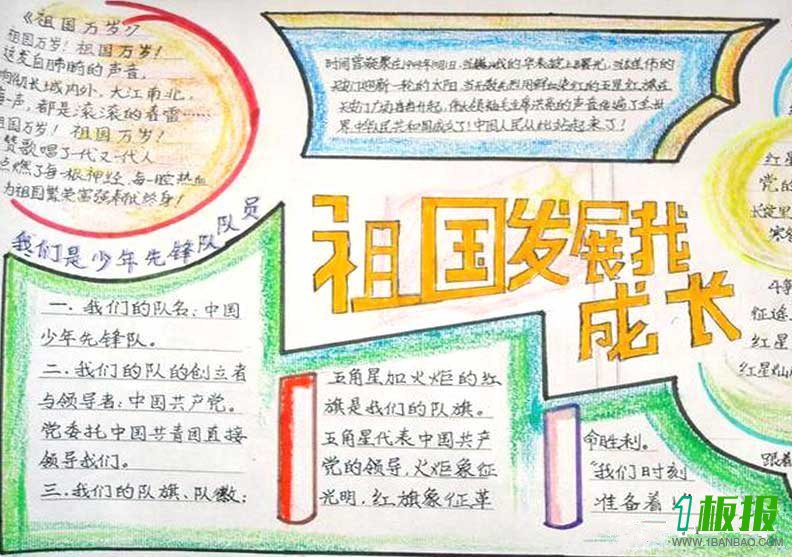 《祖国万岁》
祖国万岁！祖国万岁！
这发自肺腑的声音，
响彻长城内外，大江南北，
每一声，都是滚滚的春雷……
祖国万岁！祖国万岁！
赞歌唱了一代又一代人
点燃了每一根神经，每一腔热血
为祖国繁荣富强奉献终身！
天安门迎来新一轮的太阳，当无数先烈用鲜血染红的五星红旗在
界，中华人民共和国成立了！中国人民从此站起来了！
祖国发展我
成长
我们是少年先锋队队员
一．我们的队名：中国
少年先锋队。
二．我们的队的创立者
与领导者：中国共产党。
党委托中国共青团直接
领导我们。
三．我们的队旗、队徽：
五角星加火炬的红
旗是我们的队旗。
五角星代表中国共产
党的领导，火炬象征
光明，红旗象征革
命胜利。
"我们时刻
准备着
红星
党的
征途
红星
红星
跟着
1板报
WWW.1BANBAO.COM